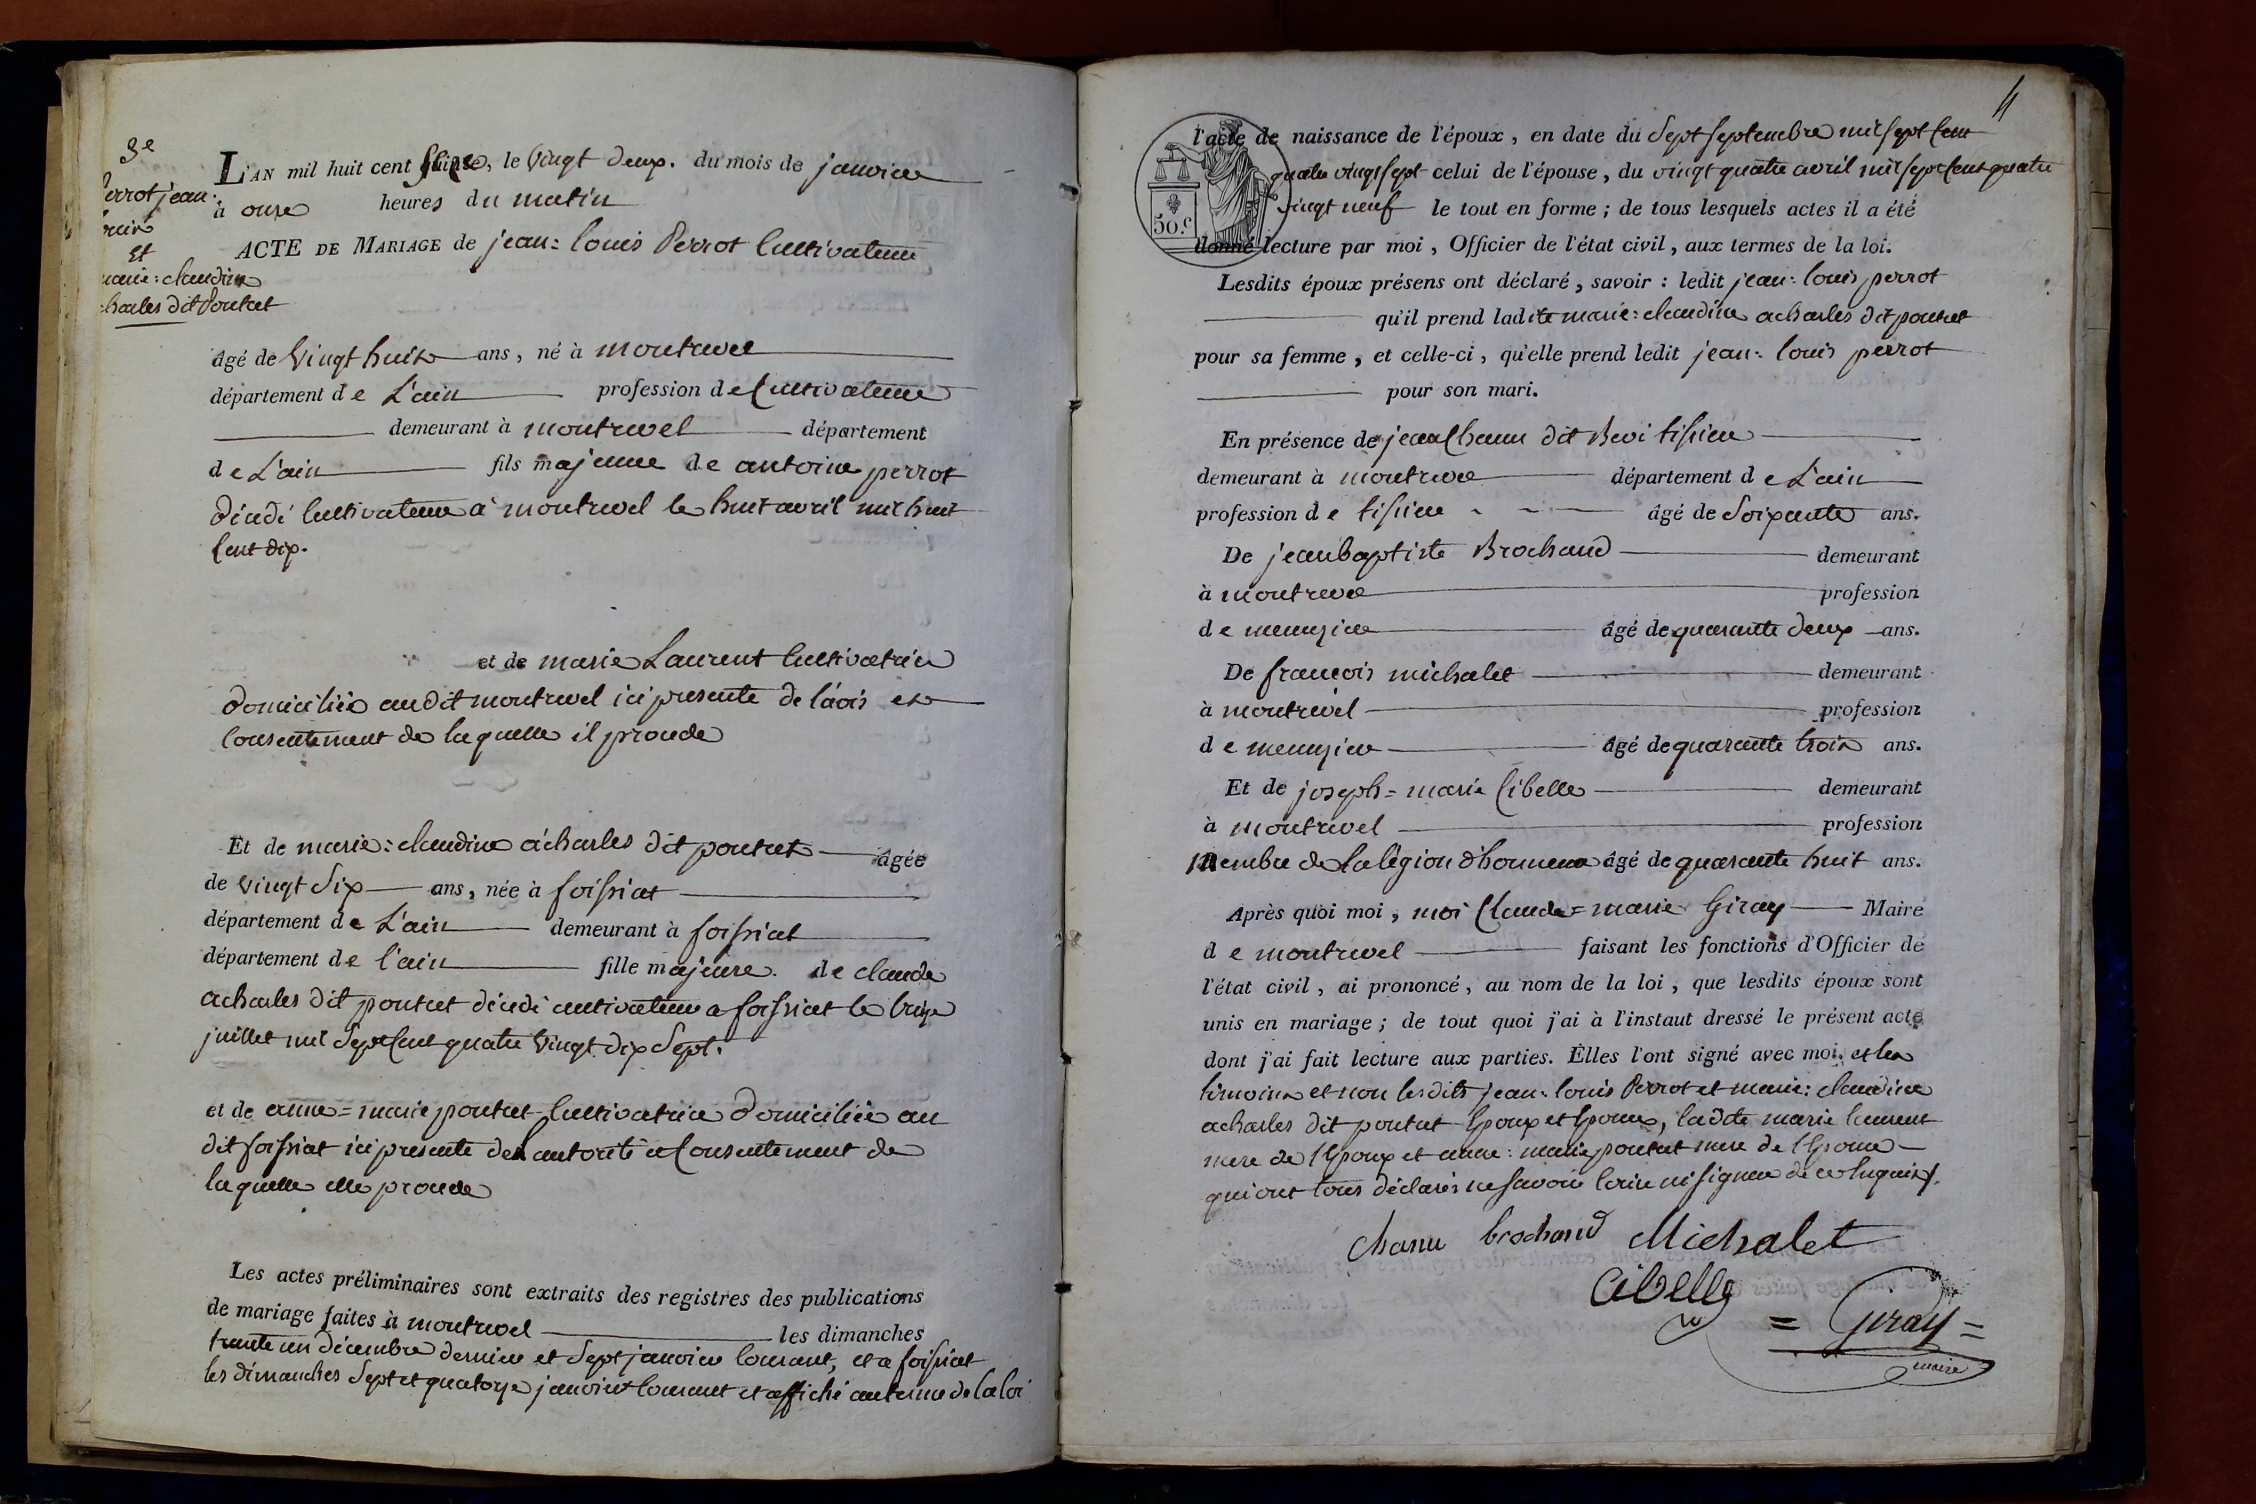 3e
Perrot jean:
louis
et
marie: claudine
acharles dit Pontut
L'AN mil huit cent Seize, le vingt deux. du mois de janvier
à onze heures du matin
ACTE DE MARIAGE de jean: louis Perrot Cultivateur
âgé de vingt huit ans, né à montrevel
département de L'ain profession de Cultivateur
demeurant à montrevel département
de L'ain fils majeur de antoine perrot
décédé Cultivateur a montrevel le huit avril mil huit
Cent dix.
et de marie Laurent Cultivatrice
domiciliée audit montrevel ici presente de l'avis et
Consentement de laquelle il procede
Et de marie: claudine acharles dit pontut âgée
de vingt Six ans, née à foissiat
département de L'ain demeurant à foissiat
département de l'ain fille majeure. de claude
acharles dit pontut décédé cultivateur a foissiat le treize
juillet mil Sept Cent quatre vingt dix Sept.
et de anne=marie pontut Cultivatrice domiciliée au
dit foissiat ici presente de L'autorité et Consentement de
laquelle elle procede
Les actes préliminaires sont extraits des registres des publications
de mariage faites à montrevel les dimanches
trente un décembre dernier et Sept janvier Courant, et a foissiat
les dimanches Sept et quatorze janvier Courant et affiché au terme de la loi
4
50.c
l'acte de naissance de l'époux, en date du Sept Septembre mil sept Cent
quatre vingt sept celui de l'épouse, du vingt quatre avril mil sept Cent quatre
vingt neuf le tout en forme; de tous lesquels actes il a été
donné lecture par moi, Officier de l'état civil, aux termes de la loi.
Lesdits époux présens ont déclaré, savoir : ledit jean: louis perrot
qu'il prend ladite marie: claudine acharles dit pontut
pour sa femme, et celle-ci, qu'elle prend ledit jean: louis perrot
pour son mari.
En présence de jean Chanu dit Bevi tissier
demeurant à montrevel département de L'ain
profession de tissier âgé de Soixante ans.
De jean baptiste Brochand demeurant
à montrevel profession
de menuzier âgé de quarante deux ans.
De francois michalet demeurant
à montrevel profession
de menuzier âgé de quarante trois ans.
Et de joseph=marie Cibelle demeurant
à montrevel profession
membre de la légion d'honneur âgé de quarante huit ans.
Après quoi moi, moi Claude=marie Giray Maire
de montrevel faisant les fonctions d'Officier de
l'état civil, ai prononcé, au nom de la loi, que lesdits époux sont
unis en mariage; de tout quoi j'ai à l'instant dressé le présent acte
dont j'ai fait lecture aux parties. Elles l'ont signé avec moi. et les
témoins et non lesdits jean: louis Perrot et marie: claudine
acharles dit pontut Epoux et Epouse, ladite marie laurent
mere de l'Epoux et anne: marie pontut mere de l'Epouse
qui ont tous déclarés ne savoir Ecrire ni signer de ce Enquis.
chanu brochand Michalet
Cibelle
= Giray =
maire